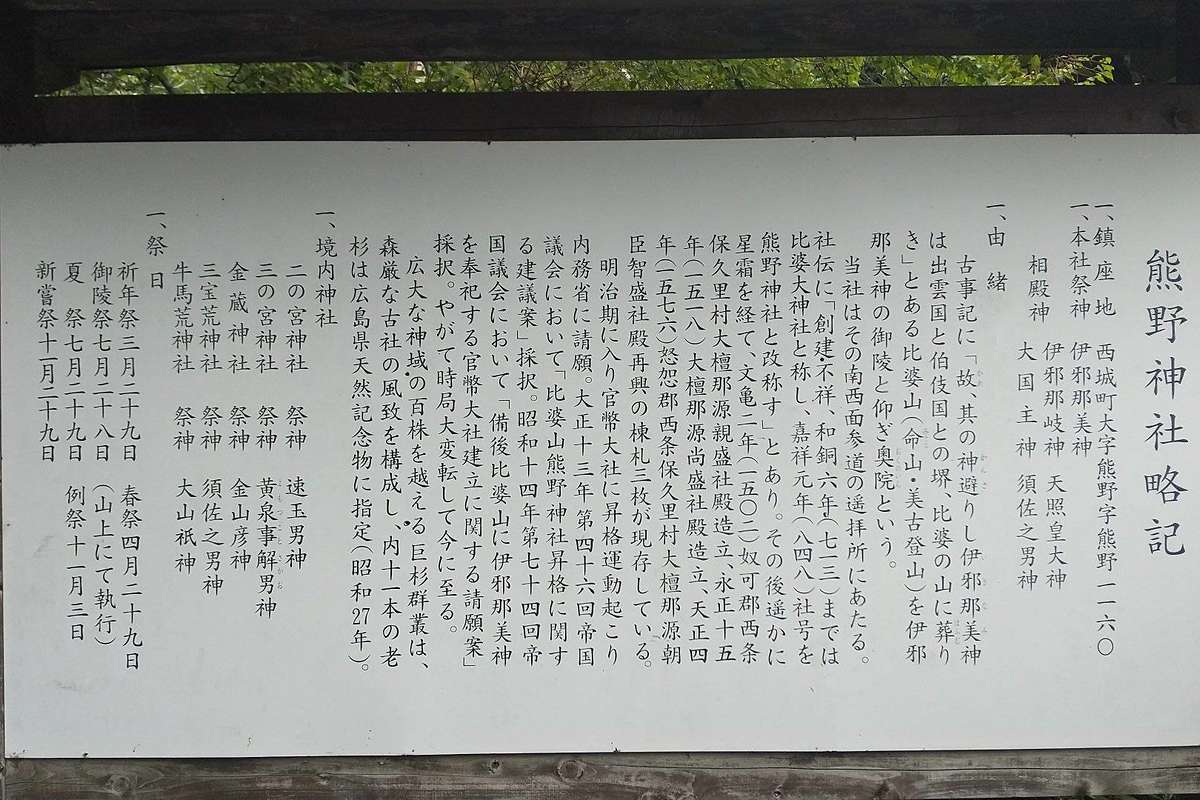 熊野神社略記
一、鎮座地 西城町大字熊野字熊野一一六〇
一、本社祭神 伊邪那美神
相殿神 伊邪那岐神 天照皇大神
大国主神 須佐之男神
一、由緒
古事記に「故、其の神避りし伊邪那美神
は出雲国と伯伎国との堺、比婆の山に葬り
き」とある比婆山(命山・美古登山)を伊邪
那美神の御陵と仰ぎ奥院という。
当社はその南西面参道の遥拝所にあたる。
社伝に「創建不祥、和銅六年(七一三)までは
比婆大神社と称し、嘉祥元年(八四八)社号を
熊野神社と改称す」とあり。その後遥かに
星霜を経て、文亀二年(一五〇二)奴可郡西条
保久里村大檀那源親盛社殿造立、永正十五
年(一五一八)大檀那源尚盛社殿造立、天正四
年(一五七六)怒恕郡西条保久里村大檀那源朝
臣智盛社殿再興の棟札三枚が現存している。
明治期に入り官幣大社に昇格運動起こり
内務省に請願。大正十三年第四十六回帝国
議会において「比婆山熊野神社昇格に関す
る建議案」採択。昭和十四年第七十四回帝
国議会において「備後比婆山に伊邪那美神
を奉祀する官幣大社建立に関する請願案」
採択。やがて時局大変転して今に至る。
広大な神域の百株を越える巨杉群叢は、
森厳な古社の風致を構成し、内十一本の老
杉は広島県天然記念物に指定(昭和27年)。
一、境内神社
二の宮神社 祭神 速玉男神
三の宮神社 祭神 黄泉事解男神
金蔵神社 祭神 金山彦神
三宝荒神社 祭神 須佐之男神
牛馬荒神社 祭神 大山祇神
一、祭日
祈年祭三月二十九日 春祭四月二十九日
御陵祭七月二十八日 (山上にて執行)
夏祭七月二十九日 例祭十一月三日
新嘗祭十一月二十九日